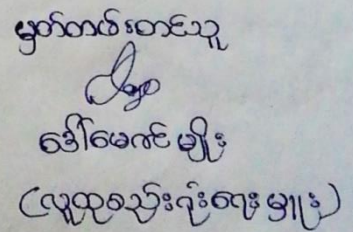 မှတ်တမ်းတင်သူ
ဒေါ်မေဇင်မျိုး
(လူထုစည်းရုံးရေးမှူး)